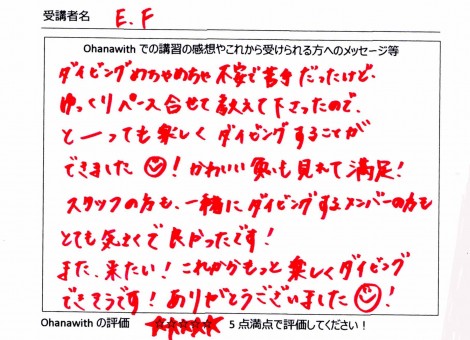 受講者名 E.F
Ohanawith での講習の感想やこれから受けられる方へのメッセージ等
ダイビングめちゃめちゃ不安で苦手だったけど、
ゆっくりペース合せて教えて下さったので、
と一っても楽しくダイビングすることが
できました！かわいい魚も見れて満足！
スタッフの方も、一緒にダイビングするメンバーの方も
とても気さくで良かったです！
また、来たい！これからもっと楽しくダイビング
できそうです！ありがとうございました！
Ohanawith の評価 ☆☆☆☆☆ 5 点満点で評価してください！